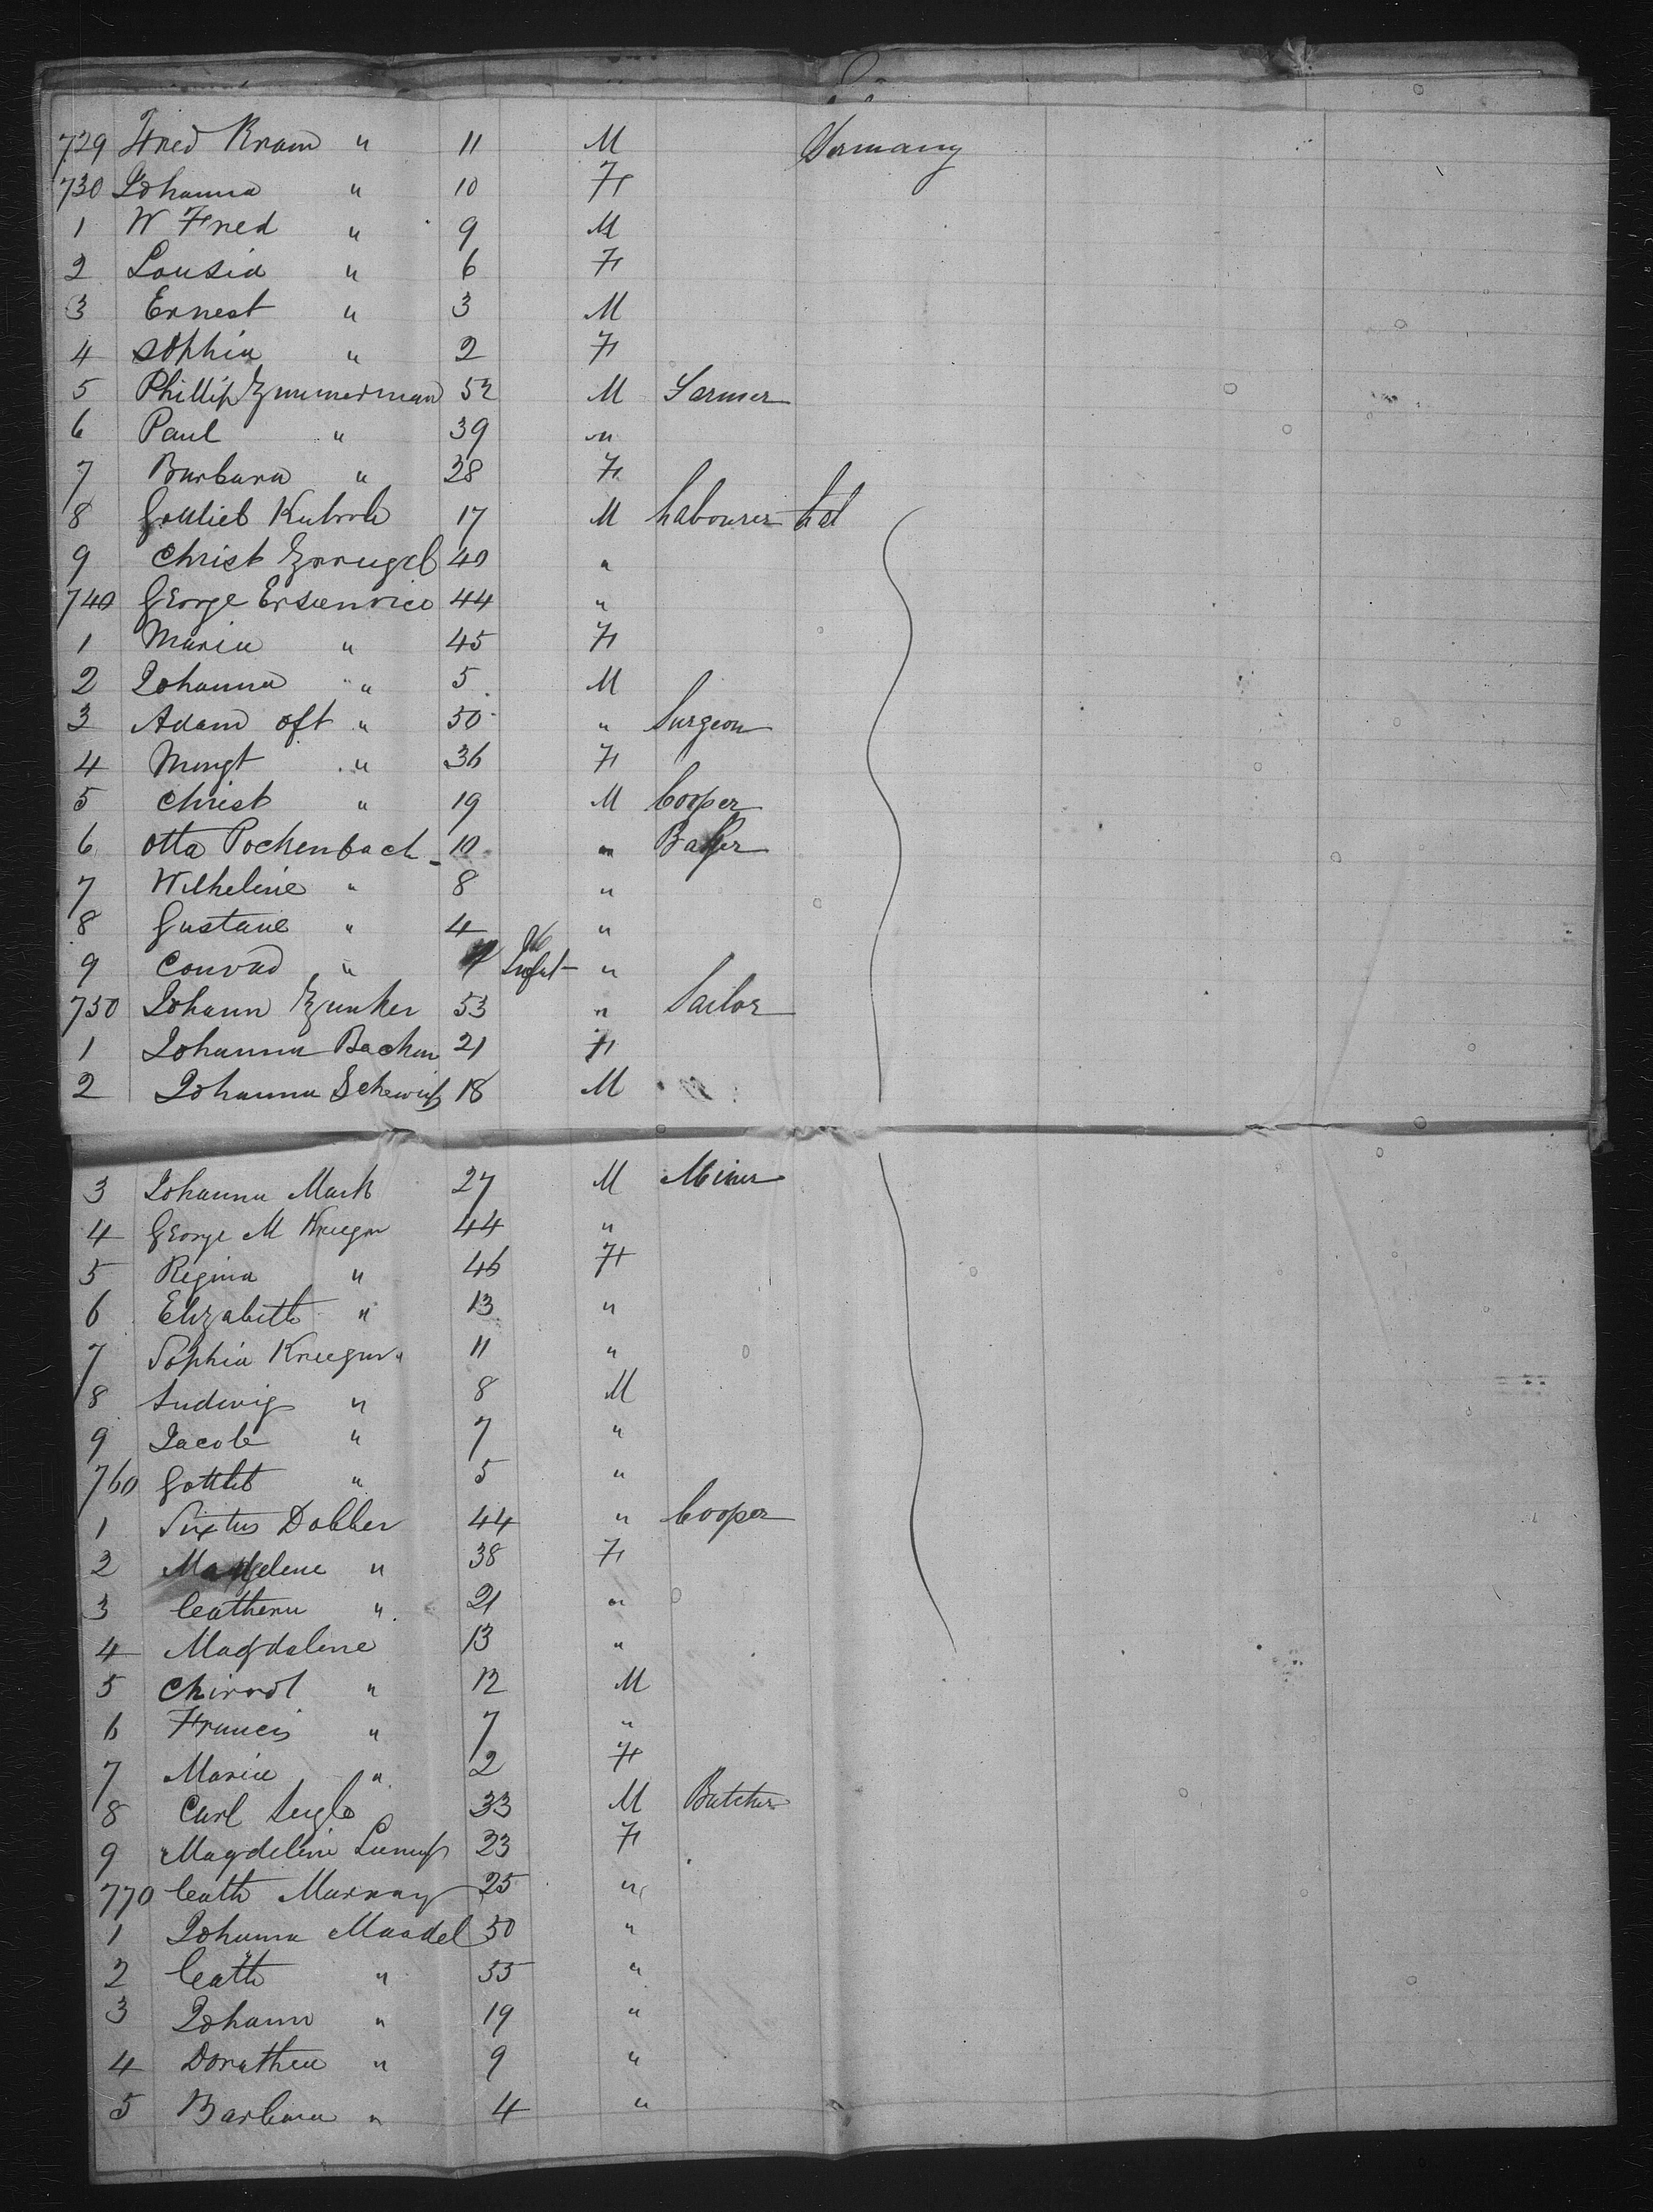 729 Fred Kram " 11 M Germany
730 Johanna " 10 F
1 W Fred " 9 M
2 Lousia " 6 F
3 Ernest " 3 M
4 Sophia " 2 F
5 Phillip Zimmerman 52 M Farmer
6 Paul " 39 "
7 Barbara " 28 F
8 Gottlieb 17 M Labourer
9 Christ 40 "
740 George 44 "
1 Maria " 45 F
2 Johanna " 5 M
3 Adam Oft " 50 " Surgeon
4 Mongt " 36 F
5 Christ " 19 M Cooper
6 Otta Pochenbach 10 " Baker
7 Wilheline " 8 "
8 Gustave " 4 "
9 Conrad " Infant "
750 Johann Zunker 53 " Sailor
1 Johanna Bachm 21 F
2 Johanna 18 M
3 Johanna Mark 27 M Miner
4 George M Kruegr 44 "
5 Regina " 46 F
6 Elizabeth " 13 "
7 Sophia Kruegur " 11 "
8 Ludwig " 8 M
9 Jacob " 7 "
760 Gottleb " 5 "
1 Sixtus Dobber 44 " Cooper
2 Magdelene " 38 F
3 Cathern " 21 "
4 Magdalene 13 "
5 " 12 M
6 Francis " 7 "
7 Maria " 2 F
8 Carl 33 M Butcher
9 Magdeline 23 F
770 Cath Murray 25 "
1 Johanna Maadel 50 "
2 Cath " 55 "
3 Johann " 19 "
4 Dorathea " 9 "
5 Barbara " 4 "